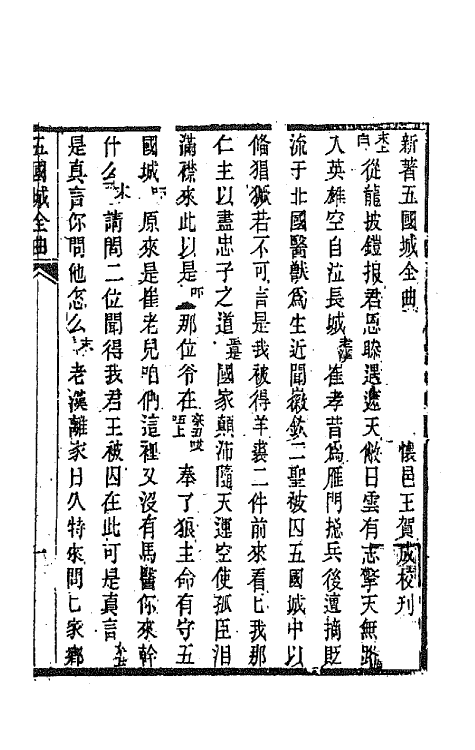 新著五國城全曲　懷邑王賀成校刋
末上白從龍披鎧报君恩睽遇遮天敝日雲有志擎天無路
入英雄空自泣長城　崔孝昔爲雁門揔兵後遭摘貶
流于北國醫獸爲生近聞徽欽二聖被囚五國城中以
脩猖獗若不可言是我被得羊裘二件前來看匕我那
仁主以盡忠子之道　國家顛沛隨天運空使孤臣泪
滿襟來此以是　吓　那位爷在　奉了狼主命有守五
國城　吓　原來是崔老兒咱們這裡又沒有馬醫你來幹
什么　末　請問二位聞得我君王被囚在此可是真言
是真言你問他怎么　末　老漢離家日久特來問匕家鄉
五國城全曲　一